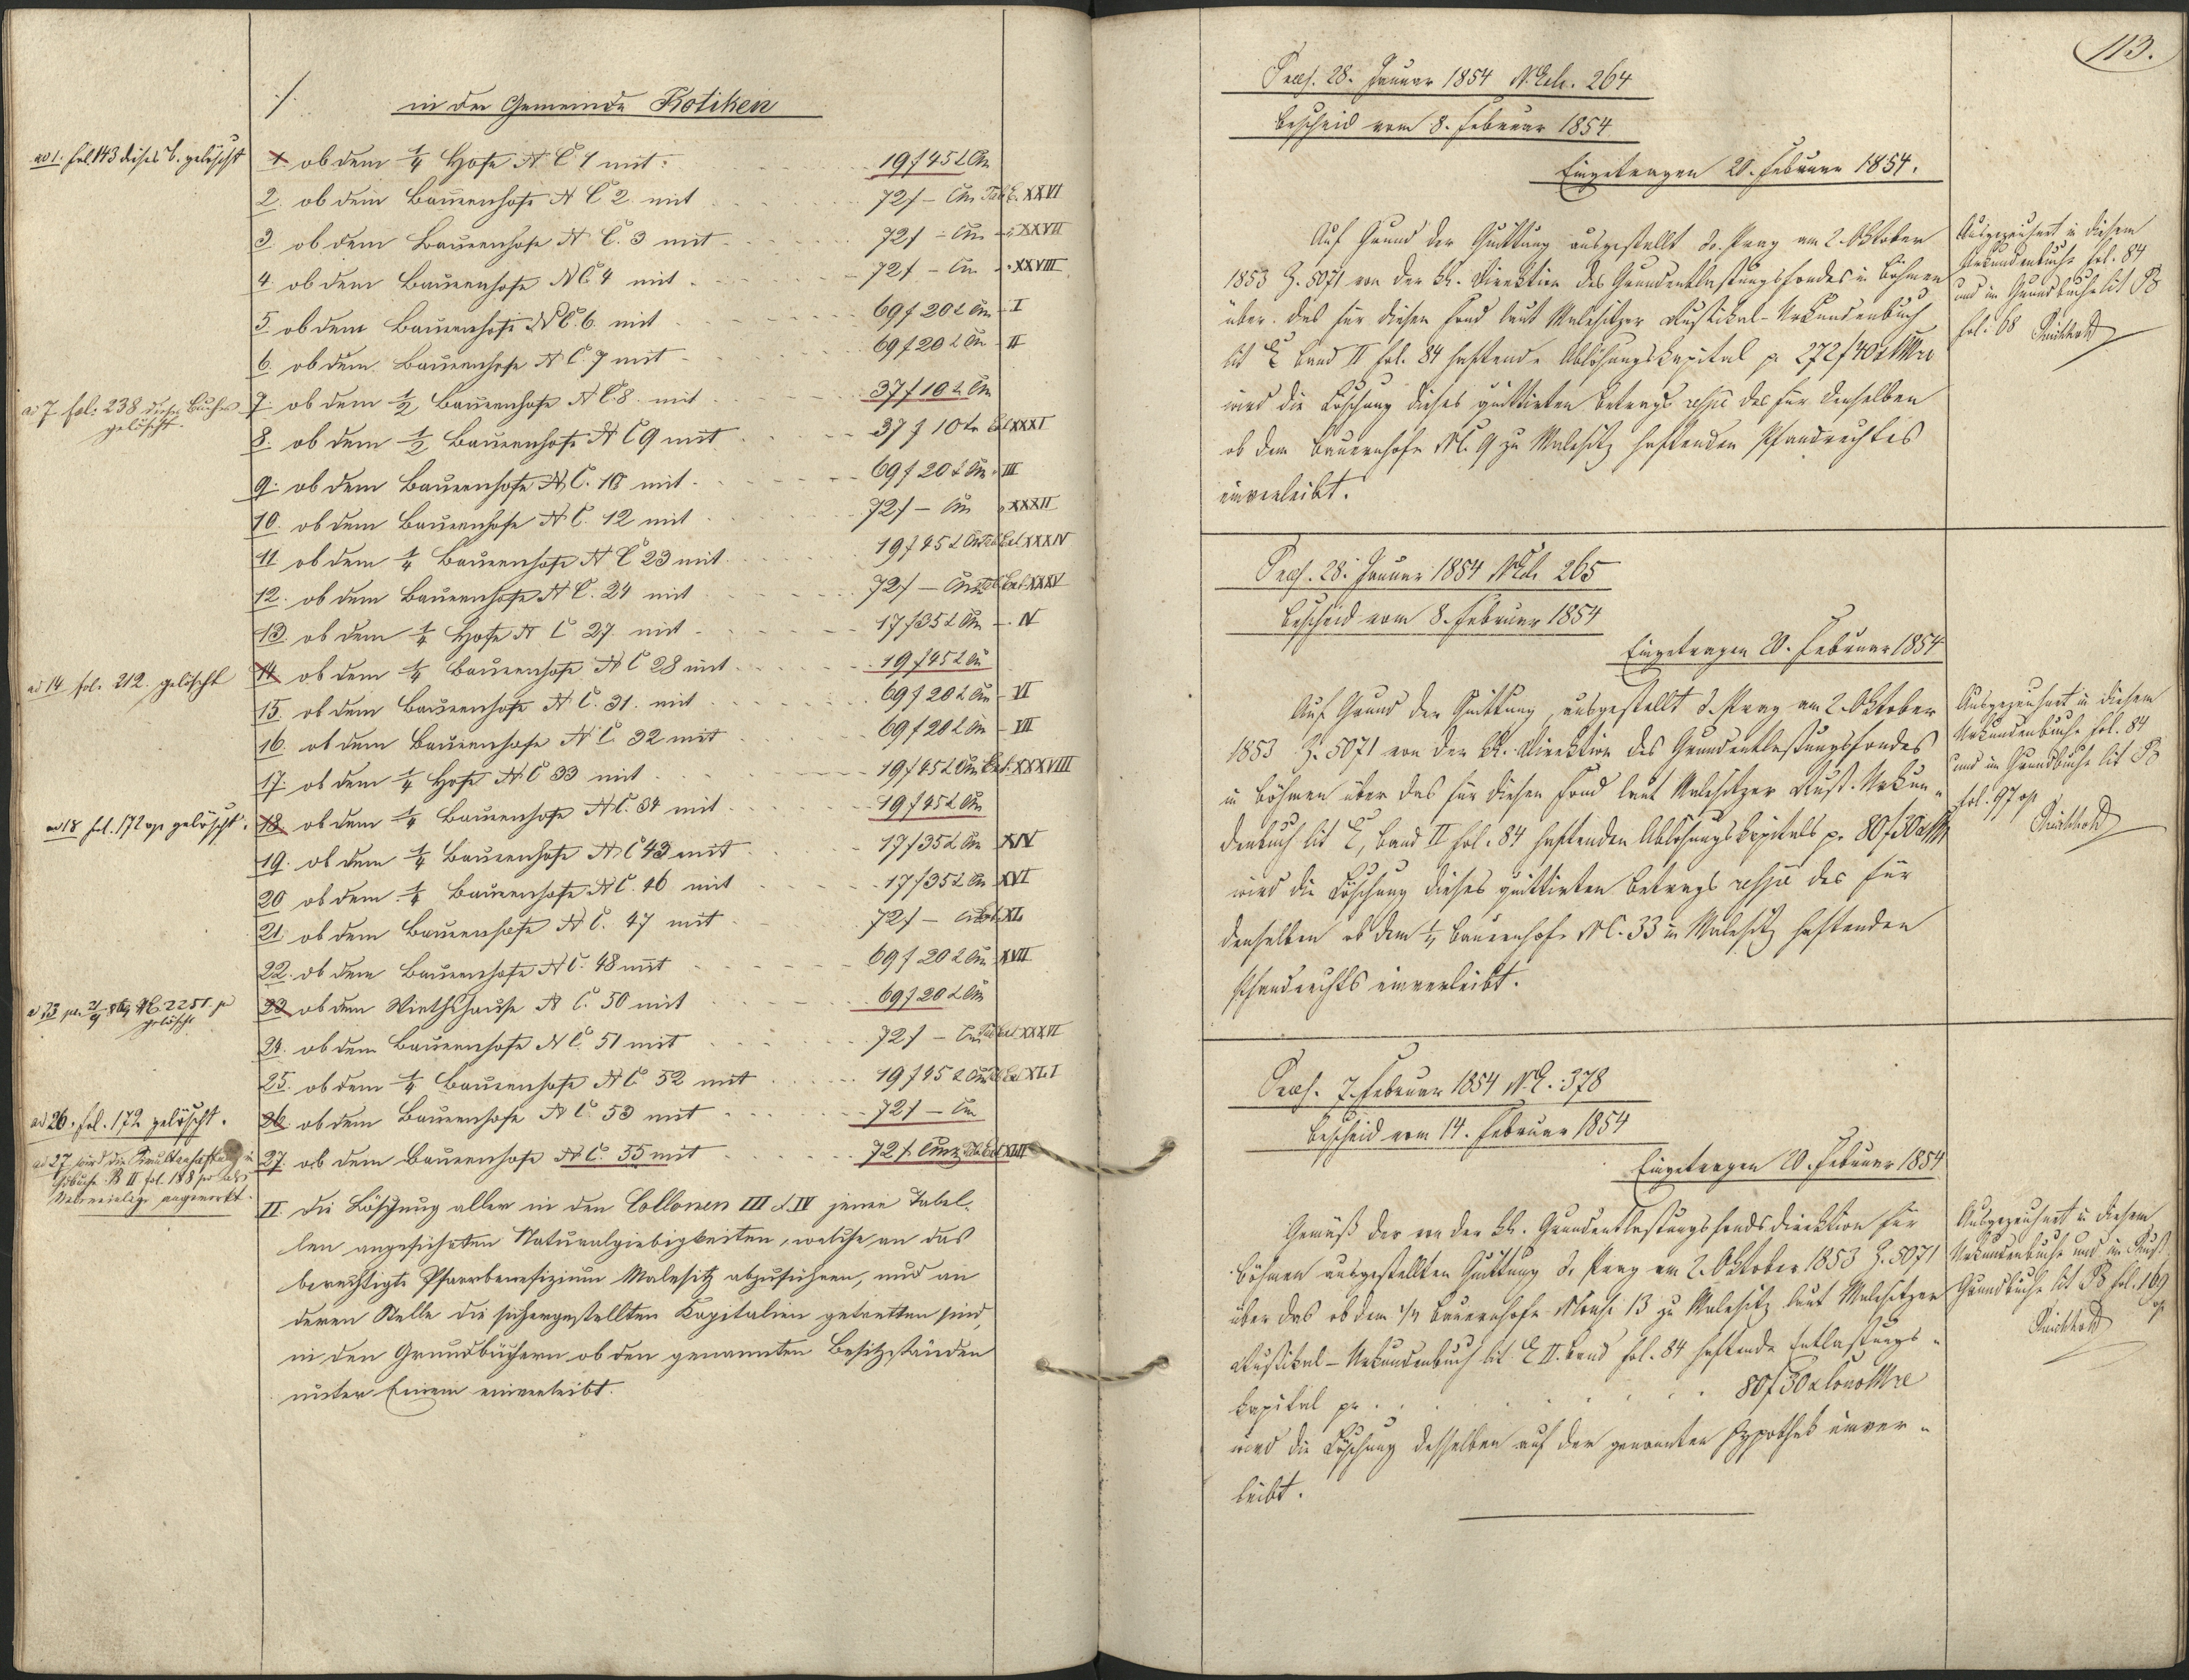 in der Gemeinde Kotiken
ad 1. fol 143 dieses B. gelöscht
1. ob dem 1/4 Hofe NC 1 mit 19 f 45 x Cm
2. ob dem Bauernhofe NC 2. mit 72 f – Cm Tab. E. XXVI
3 ob dem Bauernhofe NC. 3 mit 72 f – Cm XXVII
4. ob dem Bauernhofe NC 4 mit 72 f – Cm XXVIII
5. ob dem Bauernhofe NC. 6. mit 69 f 20 x Cm I
6. ob dem Bauernhofe NC. 7 mit 69 f 20 x Cm II
ad 7. fol. 238 dieses Buches
gelöscht.
7. ob dem 1/2 Bauernhofe NC 8. mit 37 f 10 x Cm
8. ob dem 1/2 Bauernhofe NC 9 mit 37 f 10 x XXXI
9. ob dem Bauernhofe NC. 10 mit 69 f 20 x Cm III
10. ob dem Bauernhofe NC. 12 mit 72 f – Cm XXXII
11 ob dem 1/4 Bauernhofe NC 23 mit 19 f 45 x Cm XXXIV
12. ob dem Bauernhofe NC. 24 mit 72 f – Cm XXXV
13. ob dem 1/4 Hofe NC 27 mit 17 f 35 x Cm IV
ad 14 fol. 212. gelöscht
14 ob dem 1/4 Bauernhofe NC 28 mit 19 f 45 x Cm
15. ob dem Bauernhofe NC. 31. mit 69 f 20 x Cm VI
16. ob dem Bauernhofe NC. 32 mit 69 f 20 x Cm VII
17. ob dem 1/4 Hofe NC 33 mit 19 f 45 x Cm XXXVIII
ad 18 fol. 172 gelöscht.
18. ob dem 1/4 Bauernhofe NC. 34 mit 19 f 45 x Cm
19. ob dem 1/4 Bauernhofe NC 43 mit 17 f 35 x Cm XIV
20 ob dem 1/4 Bauernhofe NC. 46 mit 17 f 35 x Cm XVI
21. ob dem Bauernhofe NC. 47 mit 72 f – XL
22. ob dem Bauernhofe NC. 48 mit 69 f 20 x Cm XVII
gelöscht
23 ob dem Wirthshause NC. 50 mit 69 f 20 x Cm
24. ob dem Bauernhofe NC. 51 mit 72 f – XXXVI
25. ob dem 1/4 Bauernhofe NC. 52 mit 19 f 45 x XLI
ad 26. fol. 172 gelöscht.
26. ob dem Bauernhofe NC. 53 mit 72 f – Cm
ad 27 wird die Simultanhaftung
B II fol. 188
angemerkt.
27. ob dem Bauernhofe NC. 55 mit 72 f Cm
II. die Löschung aller in den Collonen III & IV jener Tabel-
len angeführten Naturalgiebigkeiten, welche an das
berechtigte Pfarrbenefizium Malesitz abzuführen, und an
deren Stelle die sichergestellten Kapitalien getretten sind,
in den Grundbüchern ob den genannten Besitzständen
unter Einem einverleibt.
113.
Praes. 28. Januar 1854 N. Exh. 264
Bescheid vom 8. Februar 1854
Eingetragen 20. Februar 1854.
Auf Grund der Quittung ausgestellt d. Prag am 2. Oktober
1853 Z. 5071 von der kk. Direktion des Grundentlastungsfondes in Böhmen
über das für diesen Fond laut Malesitzer Rustikal-Urkundenbuch
lit E Band II fol. 84 haftende Ablösungskapital pr 272 f 40 x
wird die Löschung dieses quittirten Betrags respe des für denselben
ob dem Bauernhofe NC. 9 zu Malesitz haftenden Pfandrechtes
einverleibt.
Ausgezeichnet in diesem
Urkundenbuche fol. 84
und im Grundbuche lit B
fol. 68
Praes. 28. Januar 1854 N. Exh. 265
Bescheid vom 8. Februar 1854
Eingetragen 20. Februar 1854
Auf Grund der Quittung, ausgestellt d. Prag am 2. Oktober
1853 Z. 5071 von der kk. Direktion des Grundentlastungsfondes
in Böhmen über das für diesen Fond laut Malesitzer Rust. Urkun-
denbuch lit E, Band II fol. 84 haftenden Ablösungskapitals pr 80 f 30 x
wird die Löschung dieses quittirten Betrags respe des für
denselben ob dem 1/4 Bauernhofe NC. 33 in Malesitz haftenden
Pfandrechts einverleibt.
Ausgezeichnet in diesem
Urkundenbuche fol. 84
und im Grundbuche lit B
fol. 97
Praes. 7. Februar 1854 N. E. 378
Bescheid vom 14. Februar 1854
Eingetragen 20. Februar 1854
Gemäß der von der kk. Grundentlastungsfondsdirektion für
Böhmen ausgestellten Quittung d. Prag am 2. Oktober 1853 Z. 5071
über das ob dem 1/4 Bauernhofe 13 zu Malesitz laut Malesitzer
Rustikal-Urkundenbuch lit. E II. Band fol. 84 haftende Entlastungs-
kapital pr 80 f 30 x
wird die Löschung desselben auf der genannten Hypothek einver-
leibt.
Ausgezeichnet in diesem
Urkundenbuche und im Rust
Grundbuche lit B fol. 169